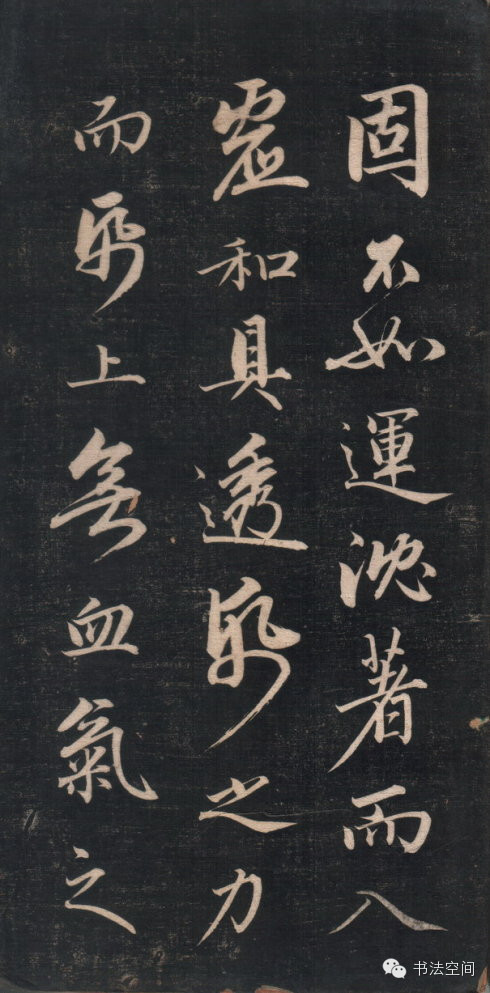 固不如運沈著而入
虛和具透帋之力
而帋上無血氣之
书法空间